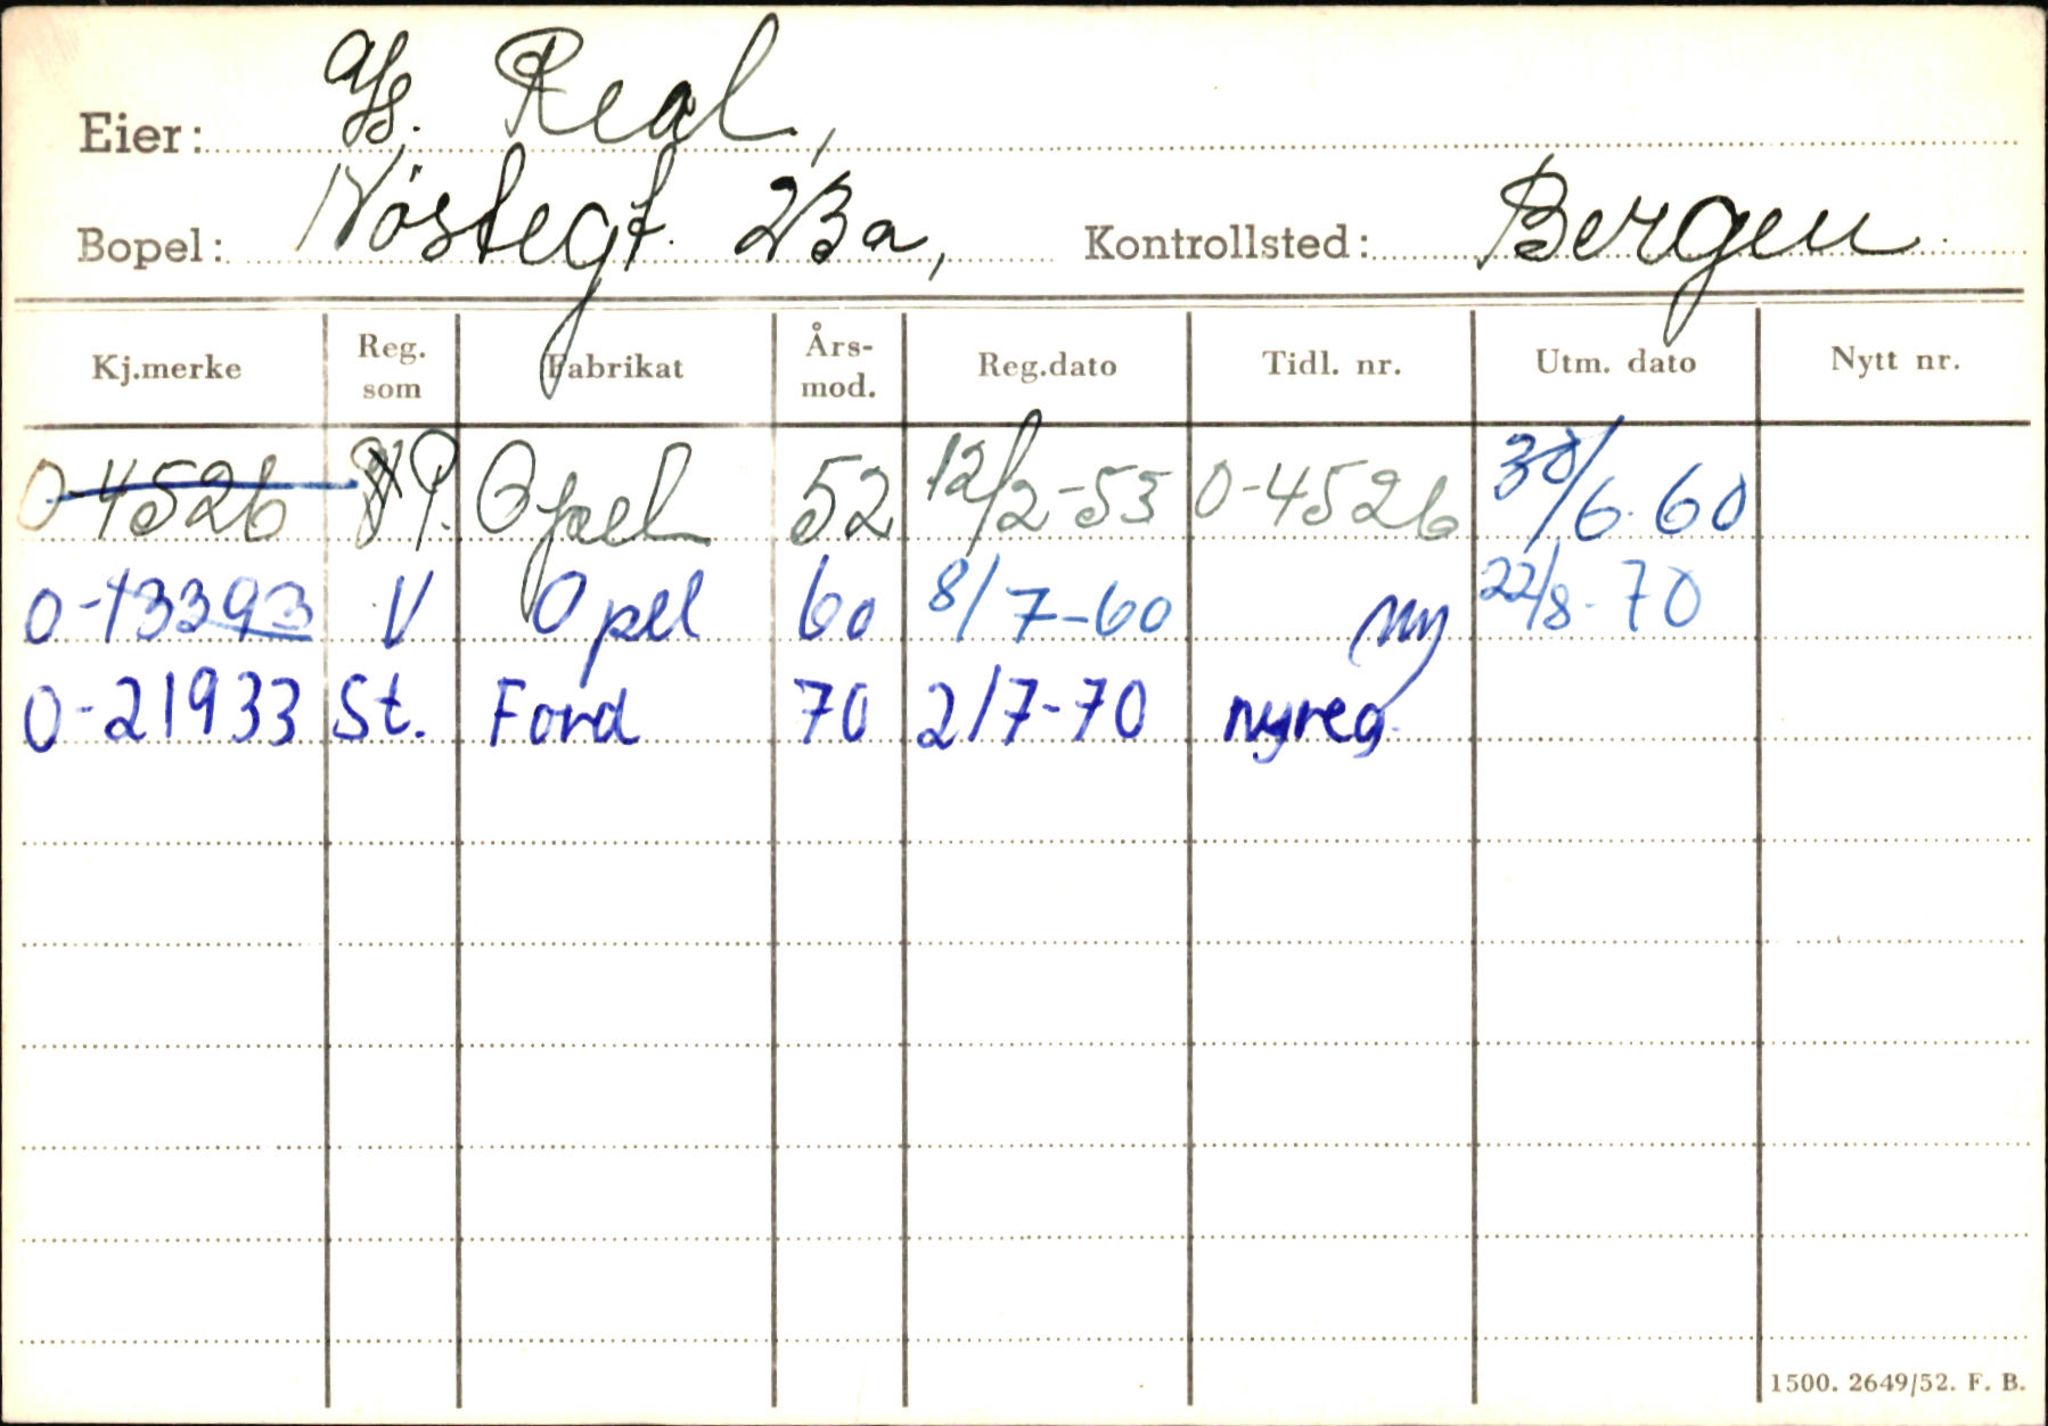 Eier: A/s. Real,
Bopel: Nöstegt. 23a, Kontrollsted: Bergen
Kj.merke Reg. som Fabrikat Års-mod. Reg.dato Tidl. nr. Utm. dato Nytt nr.
O-4526 P. Opel 52 12/2-53 O-4526 30/6.60
O-13393 V Opel 60 8/7-60 ny 22/8-70
O-21933 St. Ford 70 2/7-70 nyreg.
1500. 2649/52. F. B.